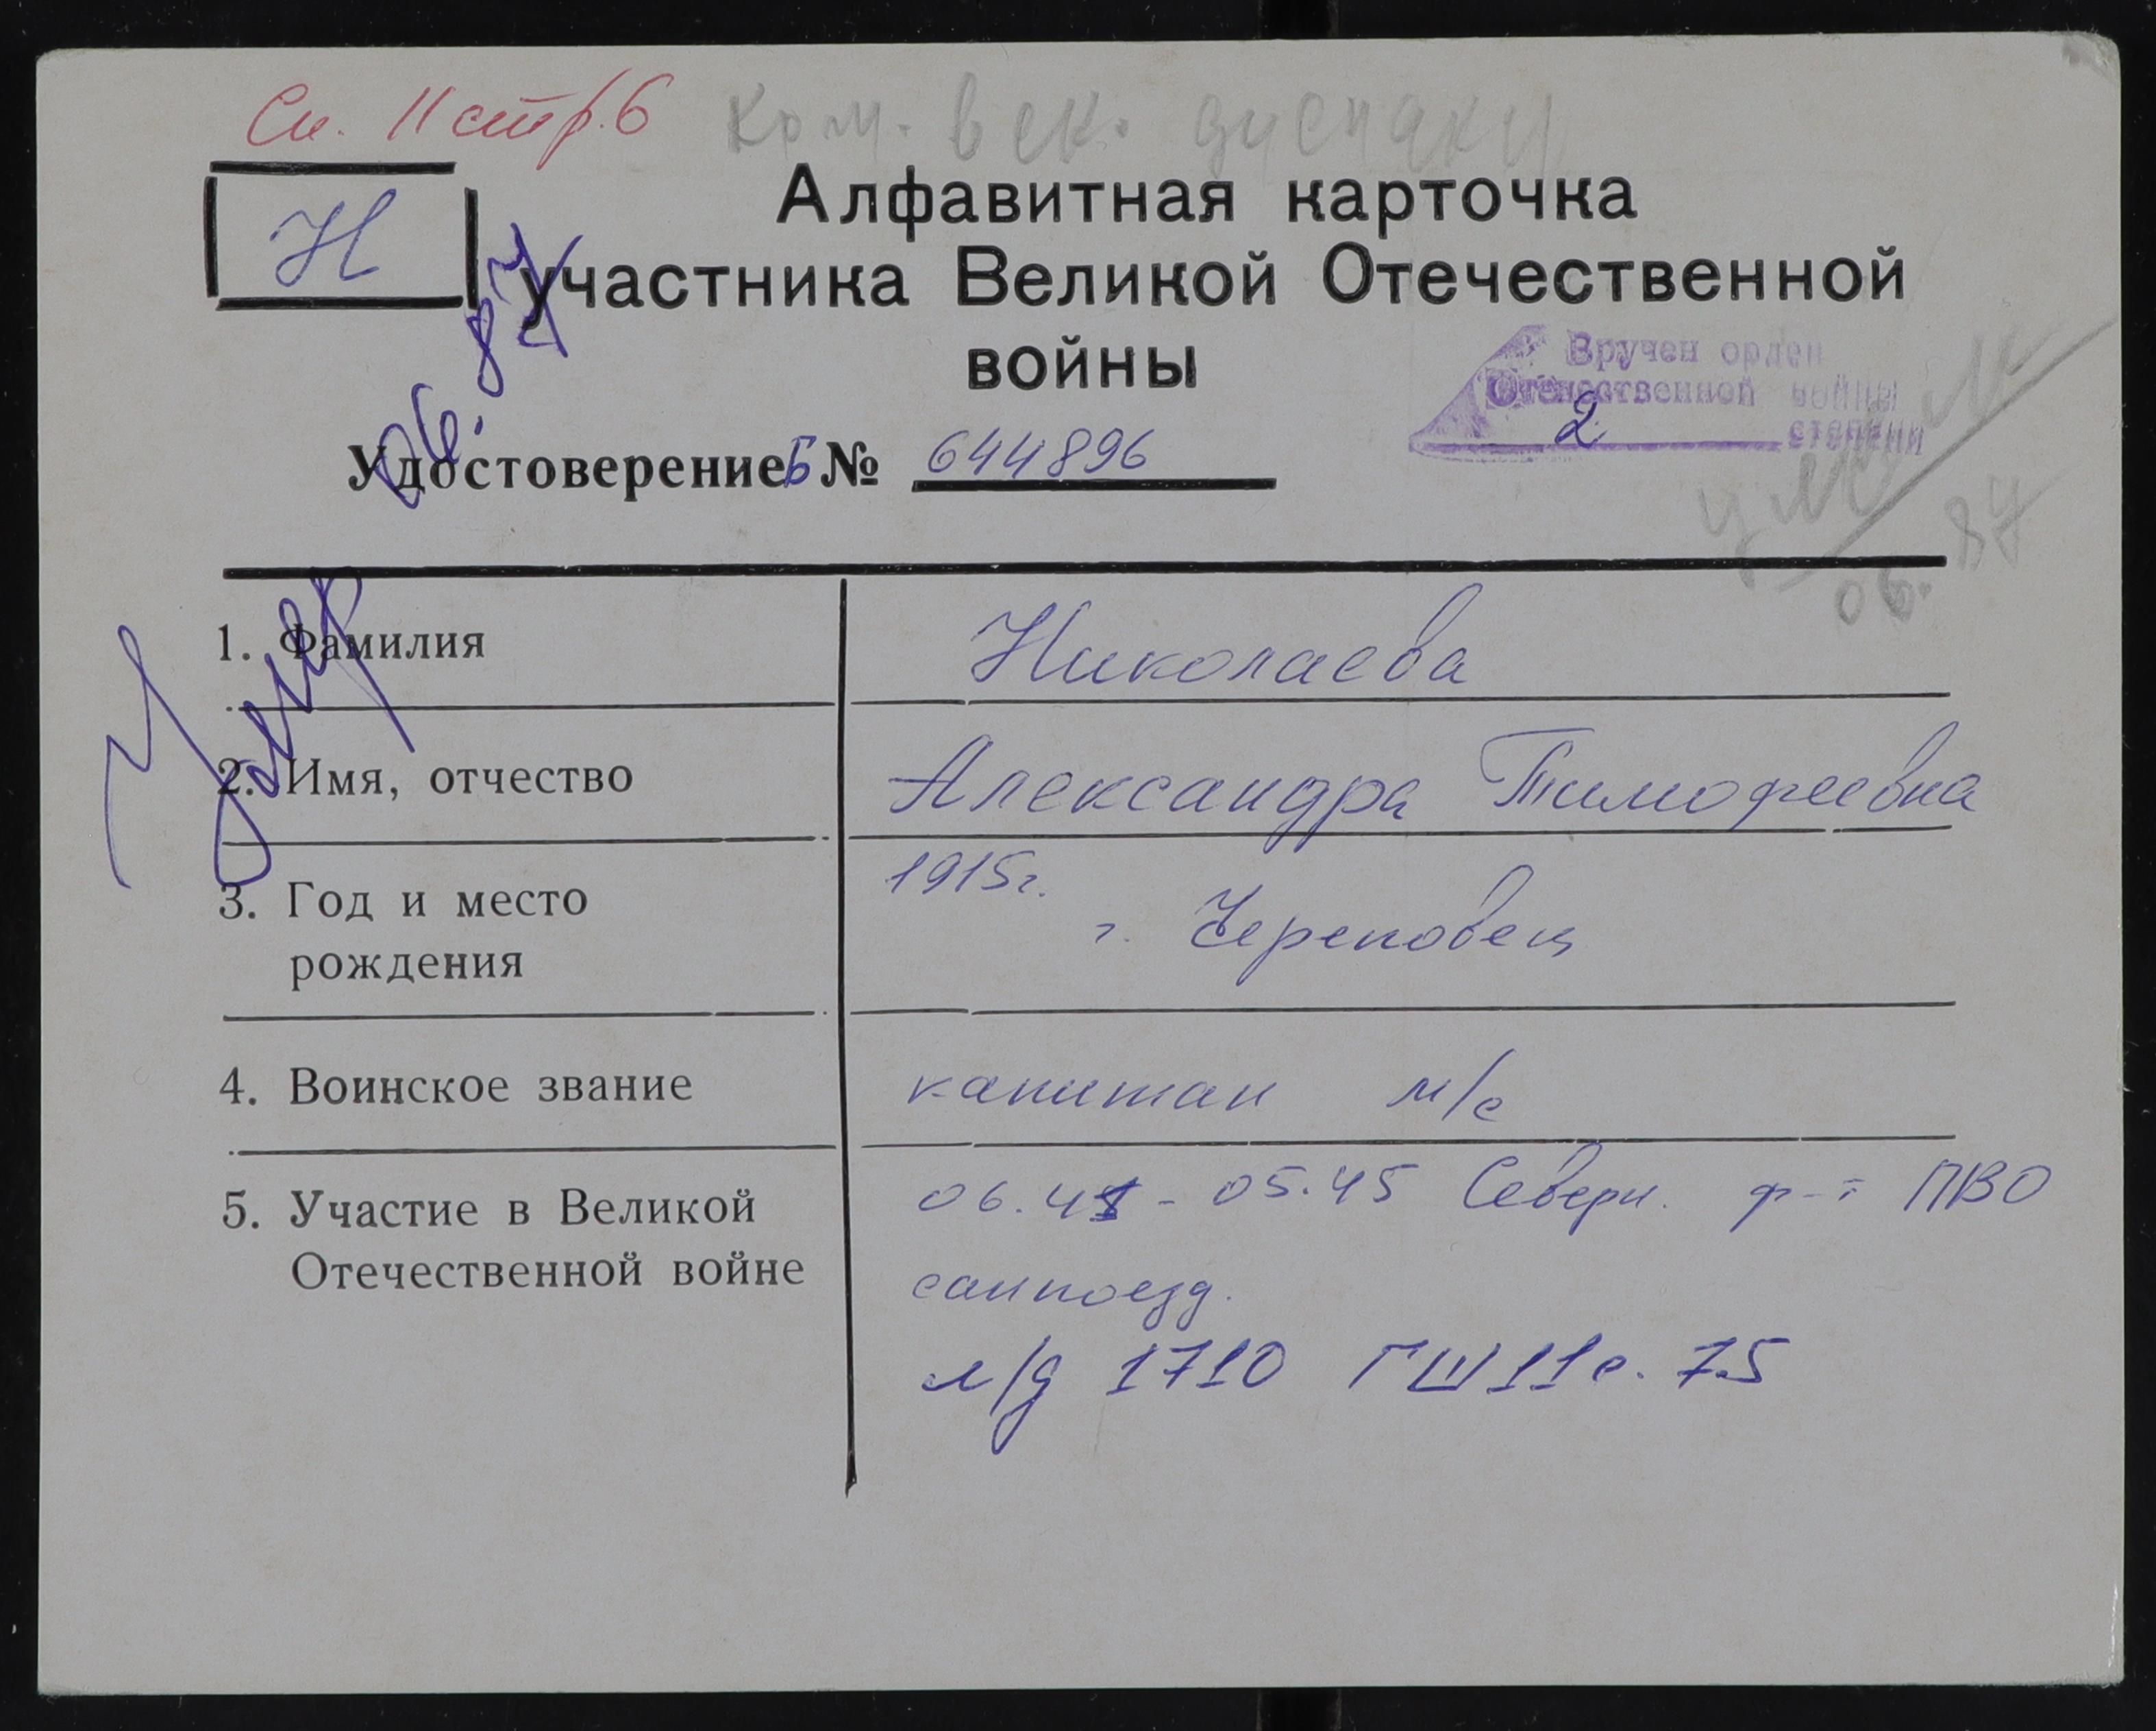 Сп. 11 стр. 6
Н
Алфавитная карточка
участника Великой Отечественной
войны
Вручен орден
Отечественной войны
2 степени
Удостоверение Б № 644896
06.87
06.87
Умер
1. Фамилия Николаева
2. Имя, отчество Александра Тимофеевна
3. Год и место 1915г.
рождения г. Череповец
4. Воинское звание капитан м/с
5. Участие в Великой 06.41 - 05.45 Северн. ф-т ПВО
Отечественной войне санпоезд.
л/д 1710 ГШ 11 с. 75